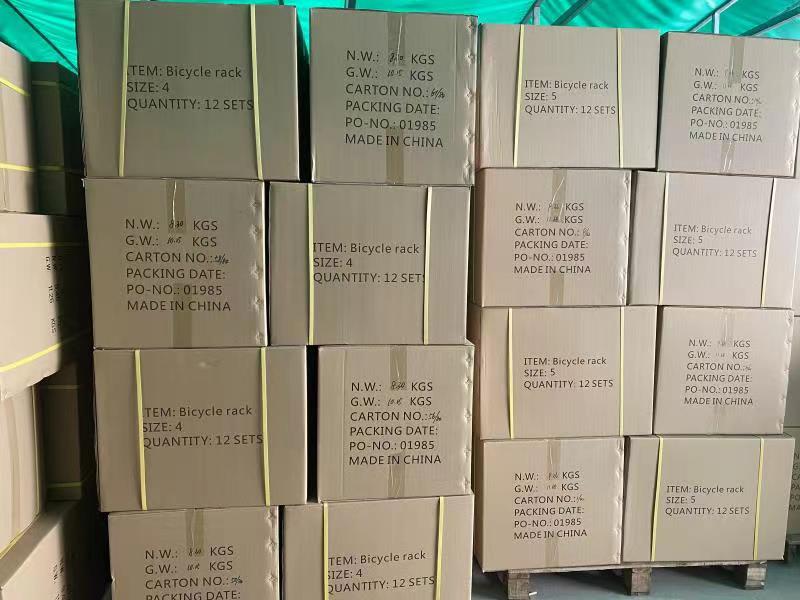 ITEM: Bicycle rack
SIZE: 4
QUANTITY: 12 SETS
N.W.: KGS
G.W.: 10.15 KGS
CARTON NO.:
PACKING DATE:
PO-NO.: 01985
MADE IN CHINA
ITEM: Bicycle rack
SIZE: 5
QUANTITY: 12 SETS
N.W.: KGS
G.W.: KGS
CARTON NO.:
PACKING DATE:
PO-NO.: 01985
MADE IN CHINA
N.W.: 8.20 KGS
G.W.: 10.15 KGS
CARTON NO.:
PACKING DATE:
PO-NO.: 01985
MADE IN CHINA
ITEM: Bicycle rack
SIZE: 4
QUANTITY: 12 SETS
N.W.: KGS
G.W.: KGS
CARTON NO.:
PACKING DATE:
PO-NO.: 01985
MADE IN CHINA
ITEM: Bicycle rack
SIZE: 5
QUANTITY: 12 SETS
ITEM: Bicycle rack
SIZE: 4
QUANTITY: 12 SETS
N.W.: 8.20 KGS
G.W.: 10.15 KGS
CARTON NO.:
PACKING DATE:
PO-NO.: 01985
MADE IN CHINA
ITEM: Bicycle rack
SIZE: 5
QUANTITY: 12 SETS
N.W.: KGS
G.W.: KGS
CARTON NO.:
PACKING DATE:
PO-NO.: 01985
MADE IN CHINA
N.W.: 8.20 KGS
G.W.: 10.15 KGS
CARTON NO.:
ITEM: Bicycle rack
SIZE: 4
QUANTITY: 12 SETS
N.W.: KGS
G.W.: KGS
CARTON NO.:
PACKING DATE:
PO-NO.: 01985
MADE IN CHINA
ITEM: Bicycle rack
SIZE: 5
QUANTITY: 12 SETS